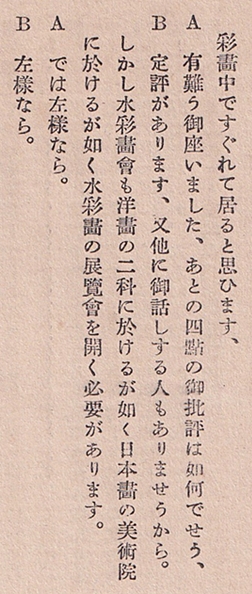 彩畫中ですぐれて居ると思ひます、
A 有難う御座いました、あとの四點の御批評は如何でせう、
B 定評があります、又他に御話しする人もありませうから。
しかし水彩畫會も洋畫の二科に於けるが如く日本畫の美術院
に於けるが如く水彩畫の展覽會を開く必要があります。
A では左樣なら。
B 左樣なら。